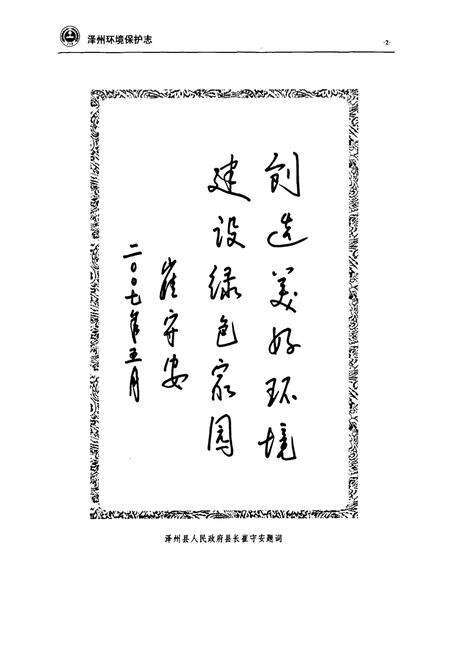 泽州环境保护志
·2·
创造美好环境
建设绿色家园
崔守安
二〇〇七年五月
泽州县人民政府县长崔守安题词